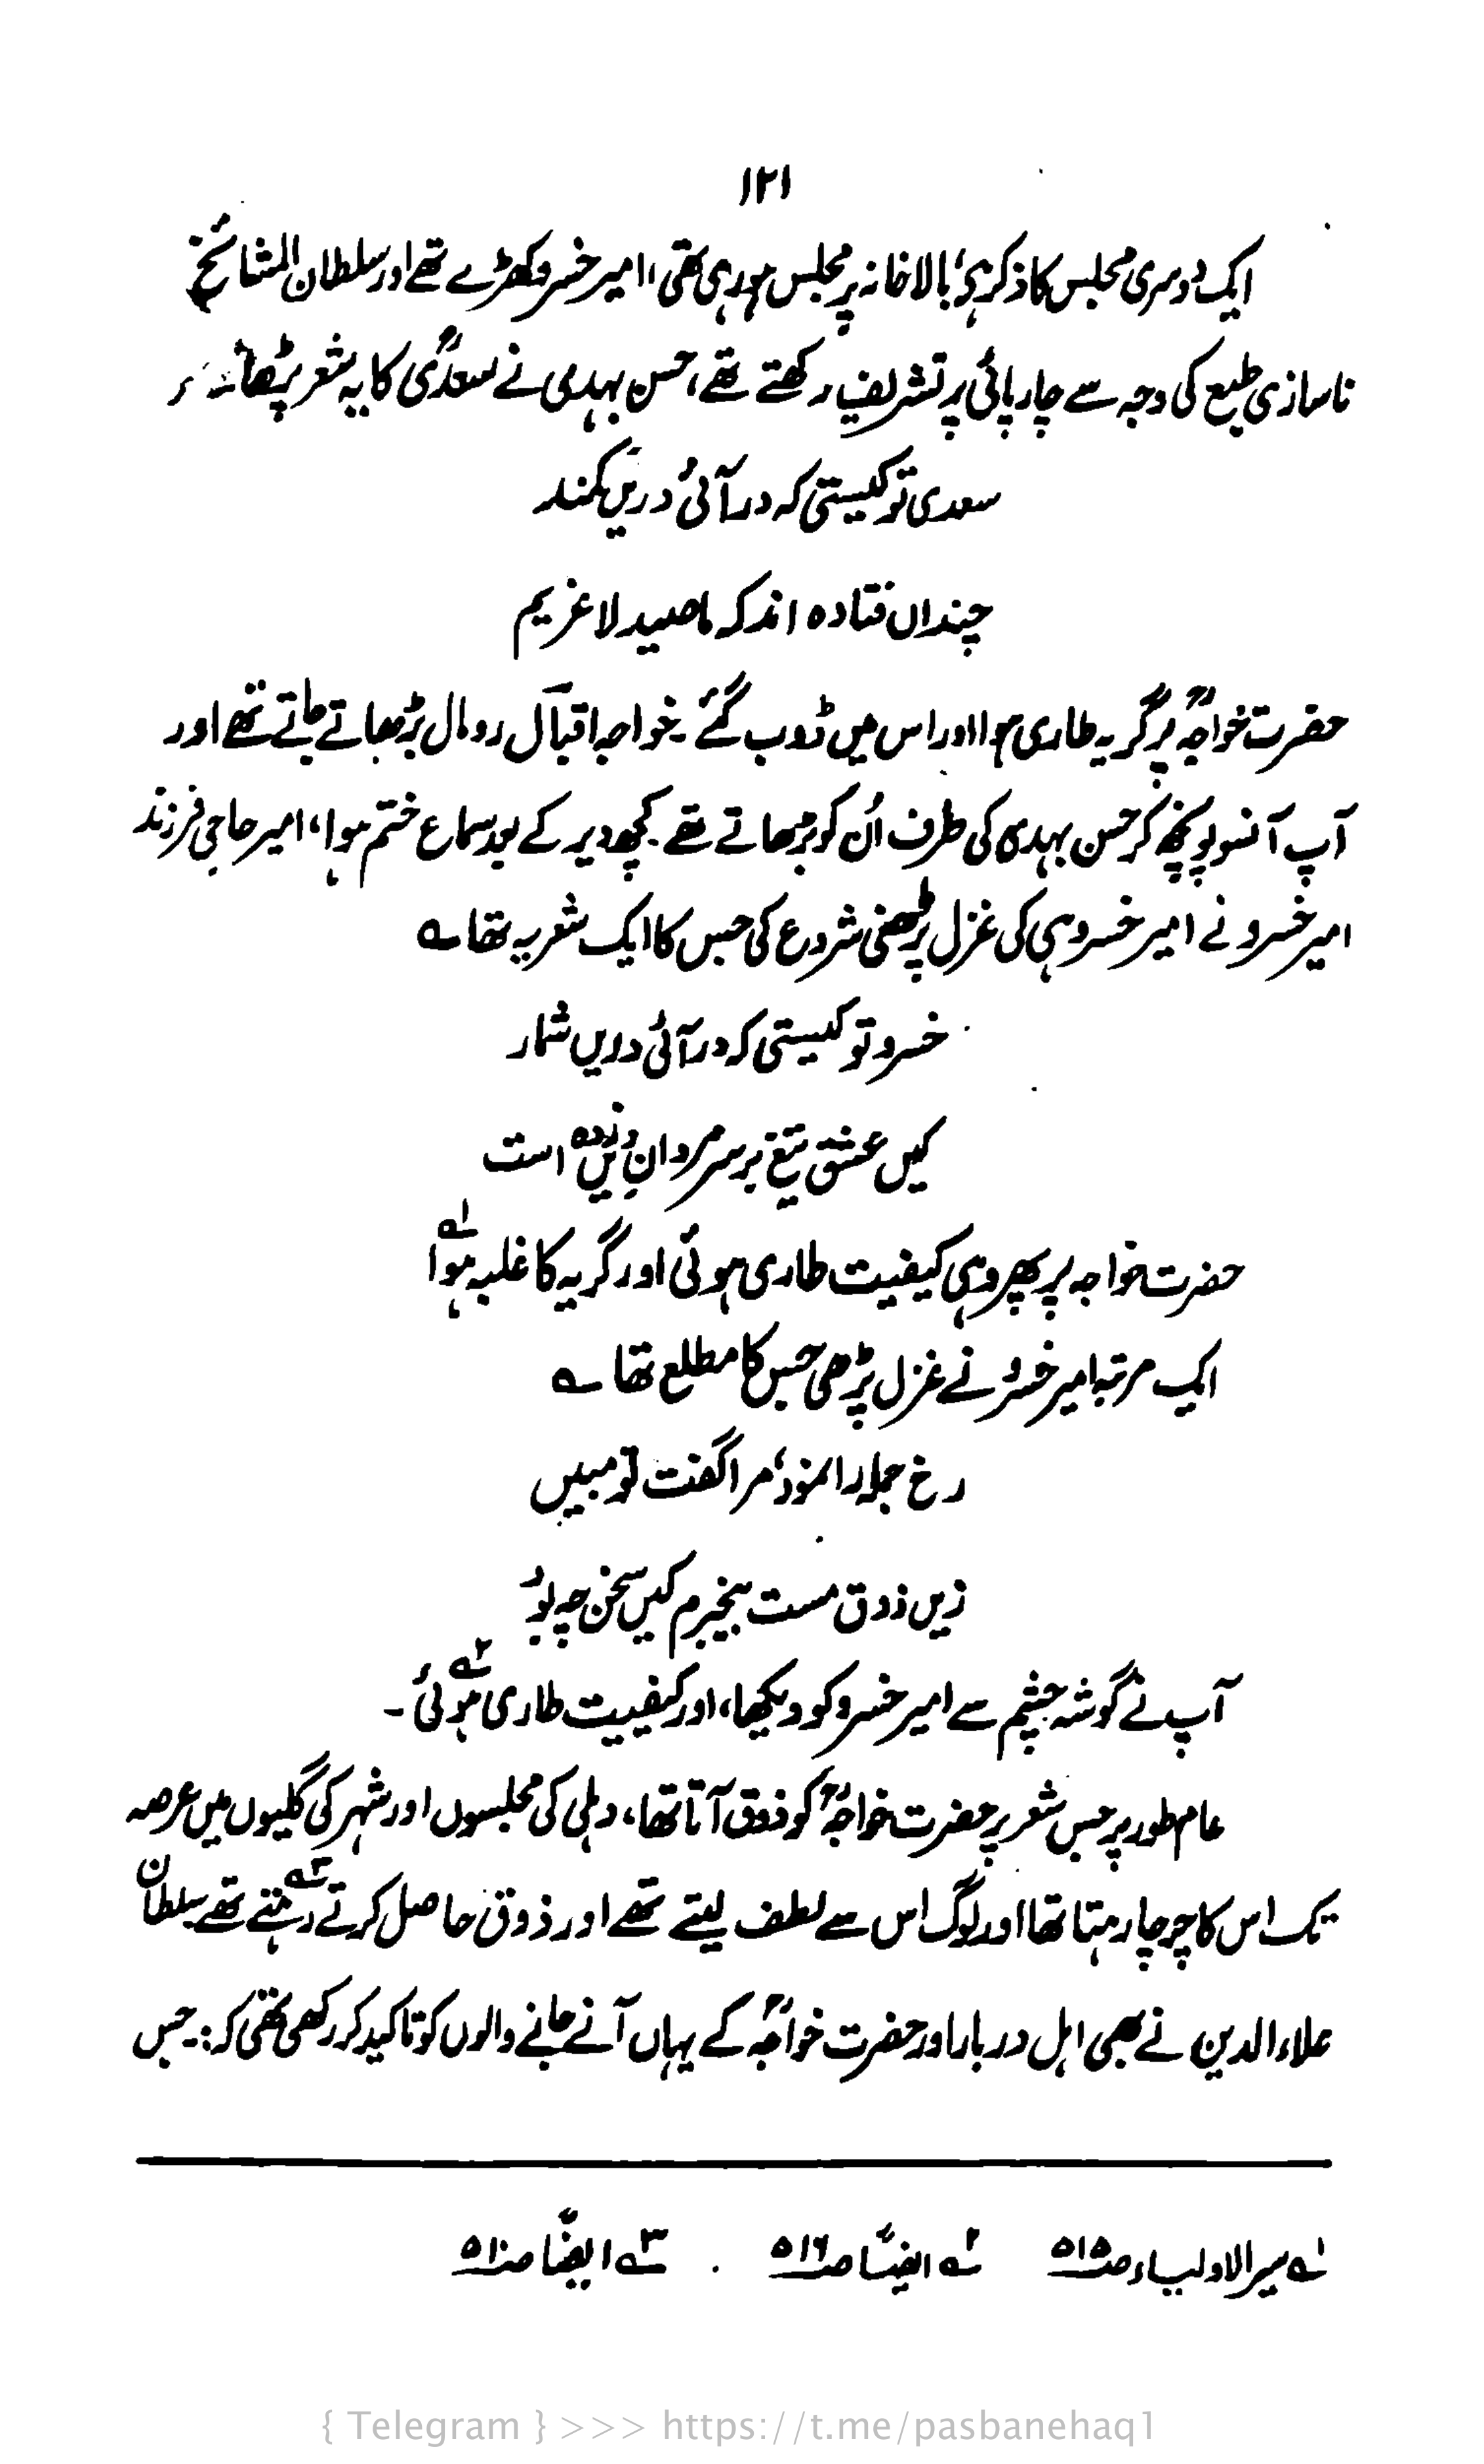 ۱۲۱
ایک دوسری مجلس کا ذکر ہے، بالا خانہ پر مجلس ہو رہی تھی، امیر خسرو کھڑے تھے اور سلطان المشائخ
ناسازی طبع کی وجہ سے چارپائی پر تشریف رکھتے تھے، حسن بہدی نے سعدیؒ کا یہ شعر پڑھا
سعدی تو کیستی کہ در آئی دریں کمند
چنداں فتادہ اند کہ ما صید لاغریم
حضرت خواجہؒ پر گریہ طاری ہوا اور اس میں ڈوب گئے۔ خواجہ اقبال رومال بڑھاتے جاتے تھے اور
آپ آنسو پونچھ کر حسن بہدی کی طرف اُن کو بڑھاتے تھے۔ کچھ دیر کے بعد سماع ختم ہوا، امیر حاجی فرزند
امیر خسرو نے امیر خسرو ہی کی غزل پڑھنی شروع کی جس کا ایک شعر یہ تھا ؎
خسرو تو کیستی کہ در آئی دریں شمار
کیں عشق تیغ بر سر مردان دیں زدہ است
حضرت خواجہ پر پھر وہی کیفیت طاری ہوئی اور گریہ کا غلبہ ہوا ۱؎
ایک مرتبہ امیر خسروؒ نے غزل پڑھی جس کا مطلع تھا ؎
رخ جملہ را نمود، مرا گفت تو مبیں
زیں ذوق مست بیخبرم کیں سخن چہ بود
آپ نے گوشہ چشم سے امیر خسرو کو دیکھا، اور کیفیت طاری ہوئی ۲؎۔
عام طور پر جس شعر پر حضرت خواجہؒ کو ذوق آتا تھا، دہلی کی مجلسوں اور شہر کی گلیوں میں عرصہ
تک اس کا چرچا رہتا تھا اور لوگ اس سے لطف لیتے تھے اور ذوق حاصل کرتے رہتے تھے ۳؎ سلطان
علاءالدین نے بھی اہل دربار اور حضرت خواجہؒ کے یہاں آنے جانے والوں کو تاکید کر رکھی تھی کہ :۔ جس
۱؎ سیر الاولیاء ص۵۱۵ ۲؎ ایضاً ص۵۱۶ ۳؎ ایضاً ص۵۱۰
{ Telegram } >>> https://t.me/pasbanehaq1